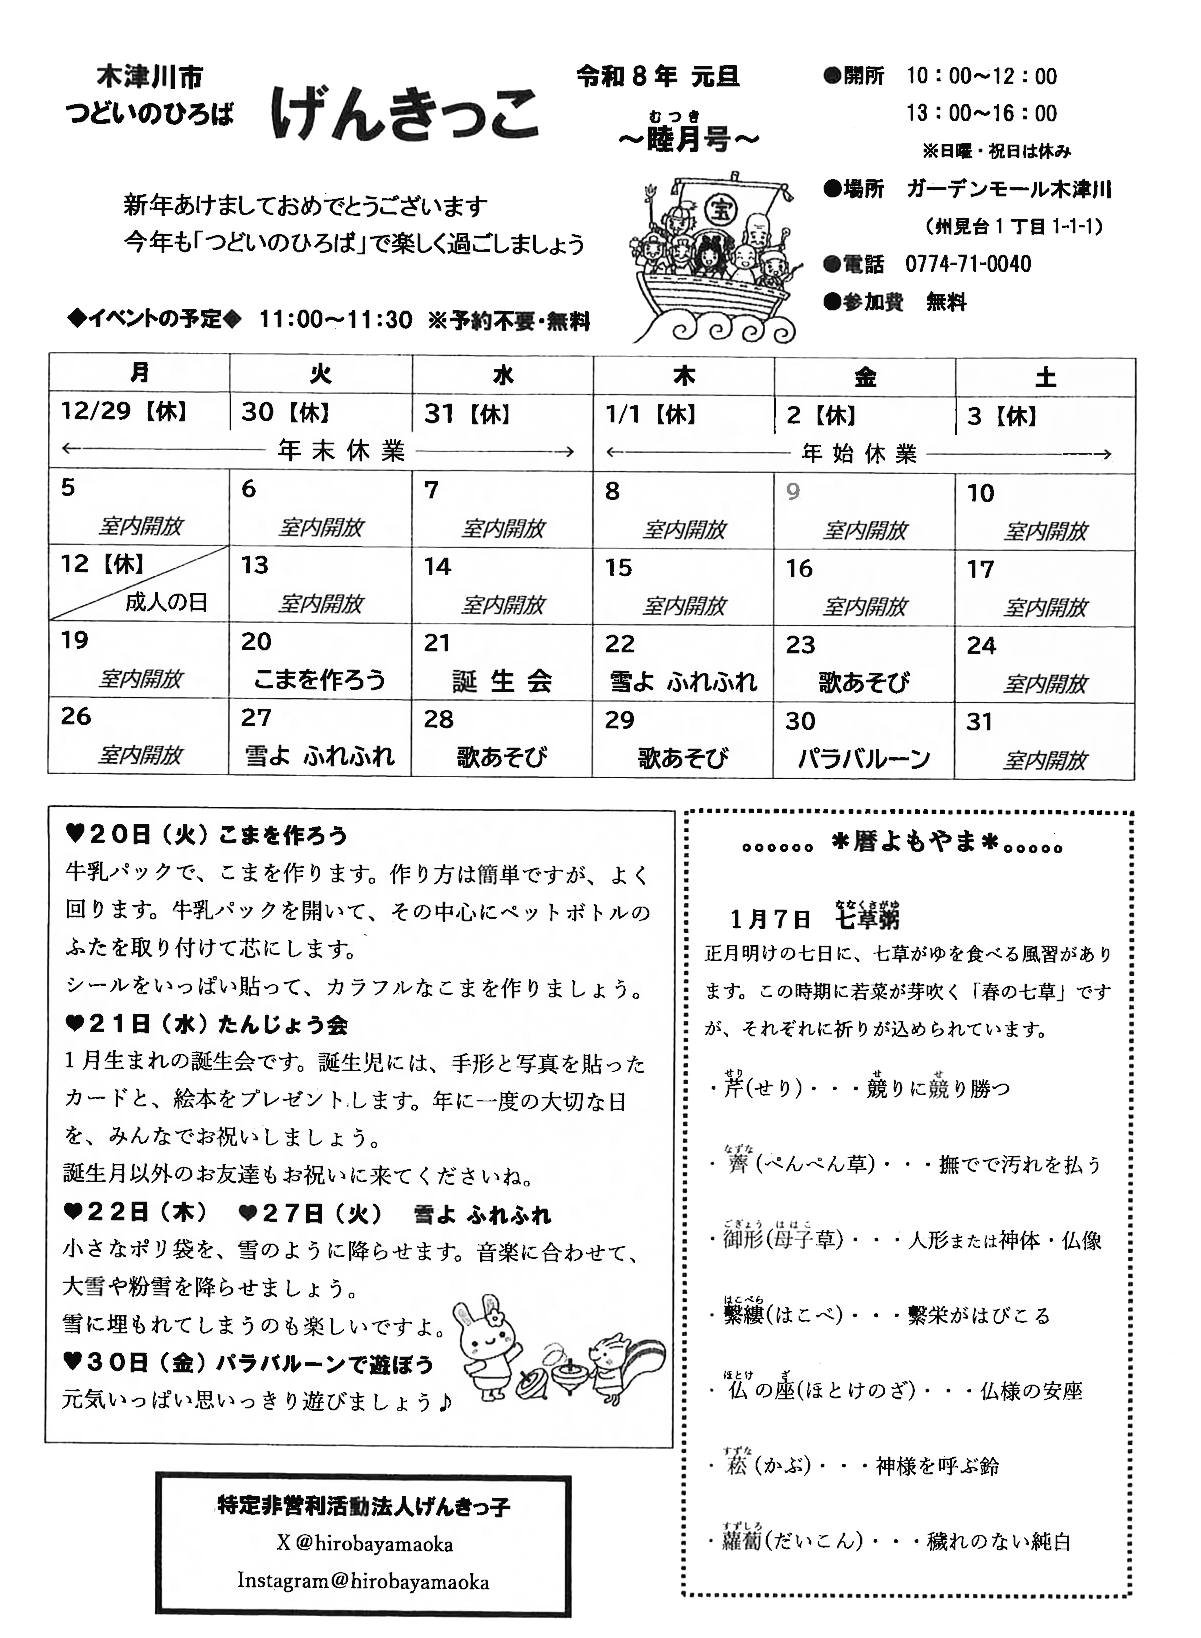 木津川市
つどいのひろば
げんきっこ
令和8年 元旦
むつき
～睦月号～
●開所 10：00～12：00
13：00～16：00
※日曜・祝日は休み
●場所 ガーデンモール木津川
（州見台1丁目1-1-1）
●電話 0774-71-0040
●参加費 無料
宝
新年あけましておめでとうございます
今年も「つどいのひろば」で楽しく過ごしましょう
◆イベントの予定◆ 11:00～11:30 ※予約不要・無料
月 火 水 木 金 土
12/29【休】 30【休】 31【休】 1/1【休】 2【休】 3【休】
年末休業 年始休業
5 6 7 8 9 10
室内開放 室内開放 室内開放 室内開放 室内開放 室内開放
12【休】 13 14 15 16 17
成人の日 室内開放 室内開放 室内開放 室内開放 室内開放
19 20 21 22 23 24
室内開放 こまを作ろう 誕生会 雪よ ふれふれ 歌あそび 室内開放
26 27 28 29 30 31
室内開放 雪よ ふれふれ 歌あそび 歌あそび パラバルーン 室内開放
♥20日（火）こまを作ろう
牛乳パックで、こまを作ります。作り方は簡単ですが、よく
回ります。牛乳パックを開いて、その中心にペットボトルの
ふたを取り付けて芯にします。
シールをいっぱい貼って、カラフルなこまを作りましょう。
♥21日（水）たんじょう会
1月生まれの誕生会です。誕生児には、手形と写真を貼った
カードと、絵本をプレゼントします。年に一度の大切な日
を、みんなでお祝いしましょう。
誕生月以外のお友達もお祝いに来てくださいね。
♥22日（木） ♥27日（火） 雪よ ふれふれ
小さなポリ袋を、雪のように降らせます。音楽に合わせて、
大雪や粉雪を降らせましょう。
雪に埋もれてしまうのも楽しいですよ。
♥30日（金）パラバルーンで遊ぼう
元気いっぱい思いっきり遊びましょう♪
特定非営利活動法人げんきっ子
X @hirobayamaoka
Instagram@hirobayamaoka
。。。。。。＊暦よもやま＊。。。。。
ななくさがゆ
1月7日 七草粥
正月明けの七日に、七草がゆを食べる風習があり
ます。この時期に若菜が芽吹く「春の七草」です
が、それぞれに祈りが込められています。
せり せ せ
・芹(せり)・・・競りに競り勝つ
なずな
・薺(ぺんぺん草)・・・撫でで汚れを払う
ごぎょう ははこ
・御形(母子草)・・・人形または神体・仏像
はこべら
・繫縷(はこべ)・・・繫栄がはびこる
ほとけ ざ
・仏の座(ほとけのざ)・・・仏様の安座
すずな
・菘(かぶ)・・・神様を呼ぶ鈴
すずしろ
・蘿蔔(だいこん)・・・穢れのない純白